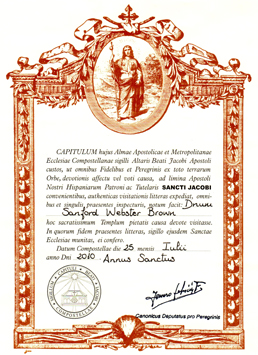 CAPITULUM hujus Almae Apostolicae et Metropolitanae
Ecclesiae Compostellanae sigilli Altaris Beati Jacobi Apostoli
custos, ut omnibus Fidelibus et Peregrinis ex toto terrarum
Orbe, devotionis affectu vel voti causa, ad limina Apostoli
Nostri Hispaniarum Patroni ac Tutelaris SANCTI JACOBI
convenientibus, authenticas visitationis litteras expediat, omni-
bus et singulis praesentes inspecturis, notum facit: Dnum
Sanford Webster Brown
hoc sacratissimum Templum pietatis causa devote visitasse.
In quorum fidem praesentes litteras, sigillo ejusdem Sanctae
Ecclesiae munitas, ei confero.
Datum Compostellae die 25 mensis Iulii
anno Dni 2010 Annus Sanctus
Canonicus Deputatus pro Peregrinis